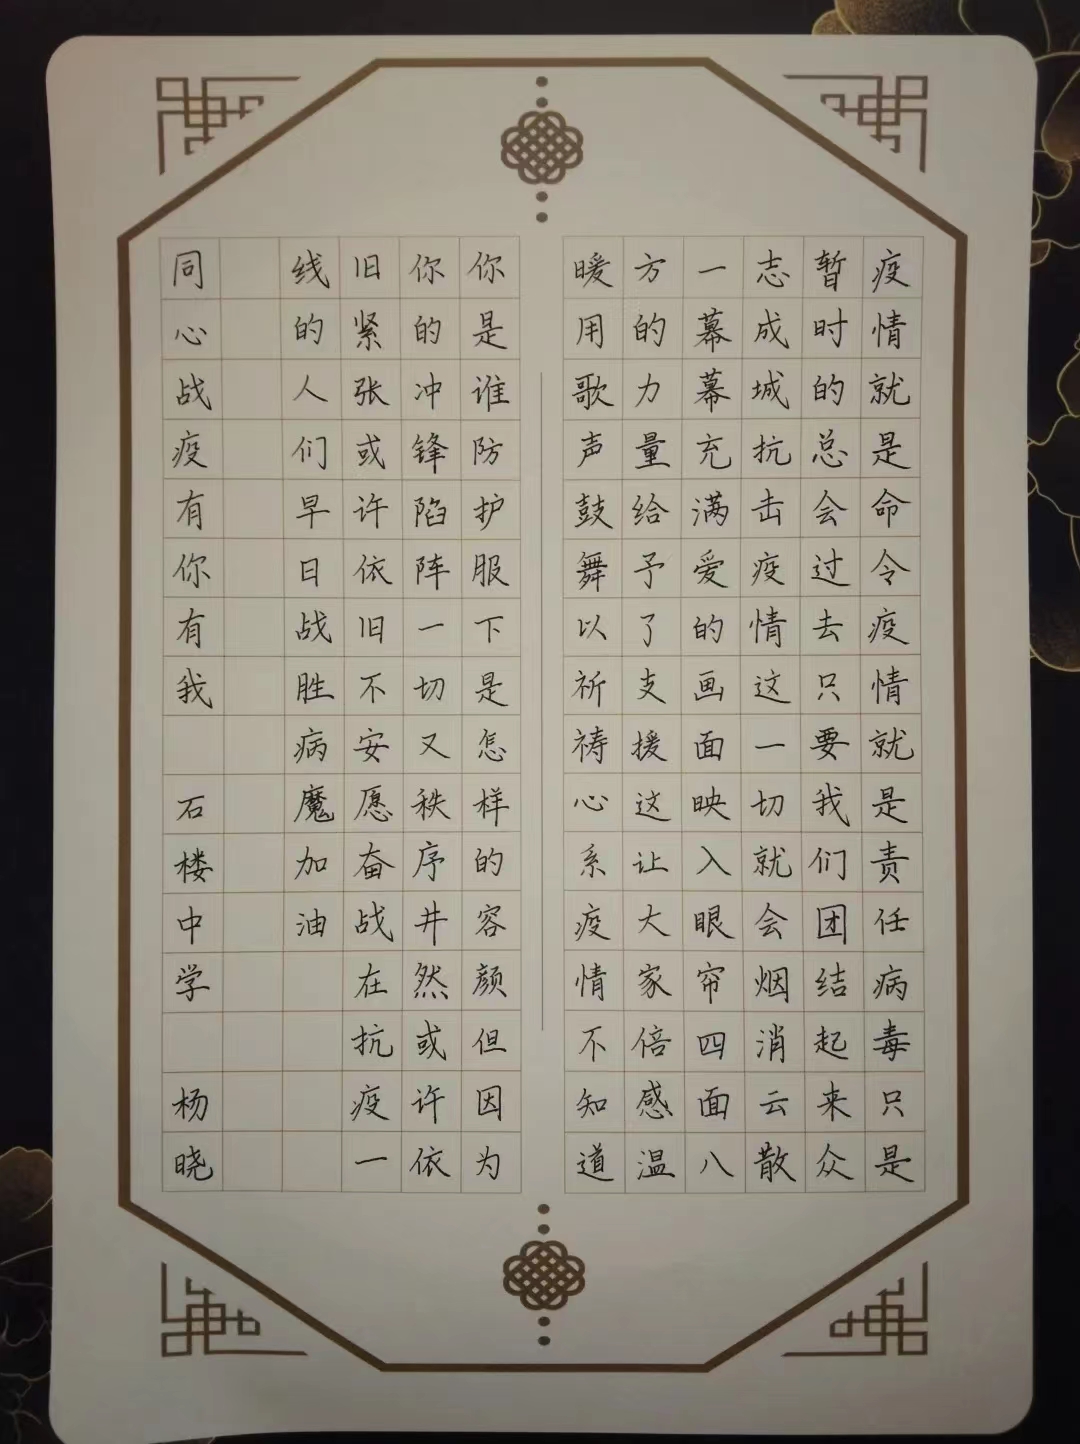 疫情就是命令疫情就是责任病毒只是
暂时的总会过去只要我们团结起来众
志成城抗击疫情这一切就会烟消云散
一幕幕充满爱的画面映入眼帘四面八
方的力量给予了支援这让大家倍感温
暖用歌声鼓舞以祈祷心系疫情不知道
你是谁防护服下是怎样的容颜但因为
你的冲锋陷阵一切又秩序井然或许依
旧紧张或许依旧不安愿奋战在抗疫一
线的人们早日战胜病魔加油
同心战疫有你有我 石楼中学 杨晓